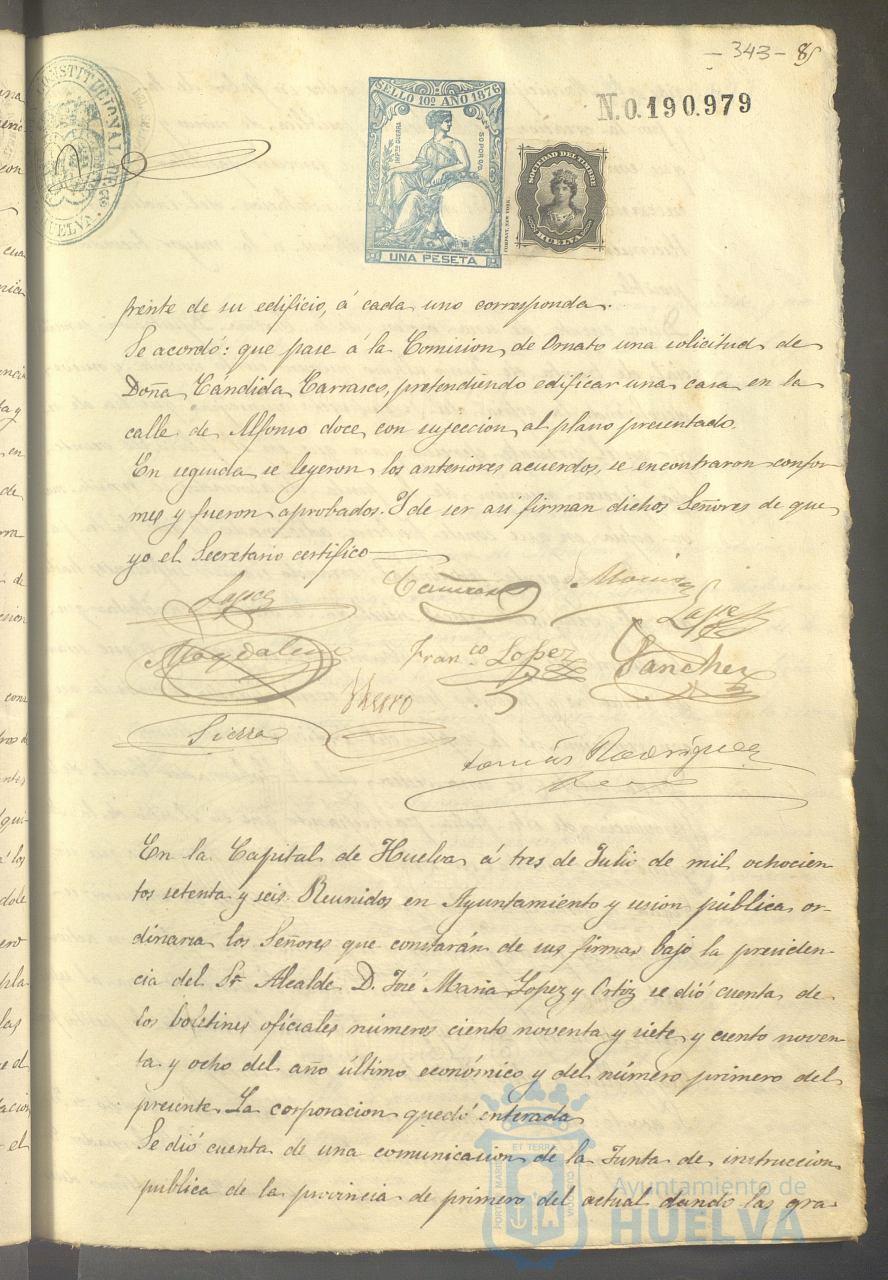 - 343 - 85
CONSTITUCIONAL DE
HUELVA
SELLO 10º AÑO 1876
IMPTO GUERRA
50 POR 0/0
UNA PESETA
N.0.190.979
SOCIEDAD DEL TIMBRE
HUELVA
COMPANY, NEW YORK.
frente de su edificio, á cada uno corresponda.
Se acordó: que pase á la Comision de Ornato una solicitud de
Doña Cándida Carrasco, pretendiendo edificar una casa en la
calle de Alfonso doce con sujeccion al plano presentado.
En seguida se leyeron los anteriores acuerdos, se encontraron confor
mes y fueron aprobados. Y de ser asi firman dichos Señores de que
yo el Secretario certifico
Lopez
Lopez
Magdalena
Franco Lopez
Sanchez
Sierra
Tomás Rodriguez
En la Capital de Huelva á tres de Julio de mil ochocien
tos setenta y seis. Reunidos en Ayuntamiento y sesion pública or-
dinaria los Señores que constarán de sus firmas bajo la presiden-
cia del Sr Alcalde D. José Maria Lopez y Ortiz se dió cuenta de
los boletines oficiales números ciento noventa y siete y ciento noven
ta y ocho del año último económico y del número primero del
presente. La corporacion quedó enterada
Se dió cuenta de una comunicacion de la Junta de instruccion
publica de la provincia de primero del actual dando las gra
ET TERRÆ
PORTUS MARIS
CUSTODIA
Ayuntamiento de
HUELVA